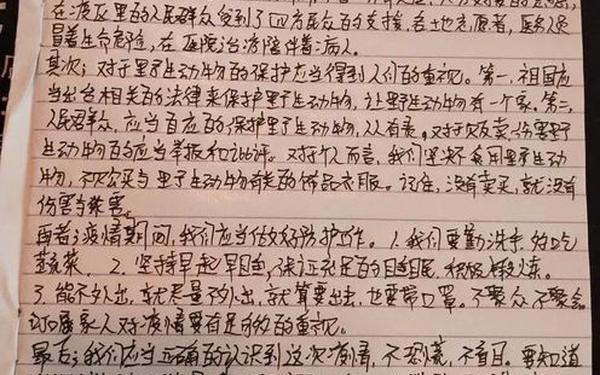 在疫区里的人民群众受到了四方民众的支援，各地志愿者，医务人员
冒着生命危险，在医院治疗陪伴着病人。
其次；对于野生动物的保护应当得到人们的重视。第一，祖国应
当出台相关的法律来保护野生动物，让野生动物有一个家。第二，
人民群众，应当百应的保护野生动物，人人有责。对于贩卖，伤害野
生动物的应当举报和批评。对于个人而言，我们坚决不食用野生动
物，不购买与野生动物有关的饰品衣服。记住，没有卖买，就没有
伤害与杀害。
再者；疫情期间，我们应当做好防护工作。1.我们要勤洗手，多吃
蔬菜。2.坚持早起早睡，保证充足的睡眠，积极锻炼。
3.能不外出，就尽量不外出，就算要出去，也要带口罩。不聚众不聚会。
家人对疫情要有足够的重视。
最后；我们应当正确的认识到这次疫情，不恐慌，不盲目。要知道